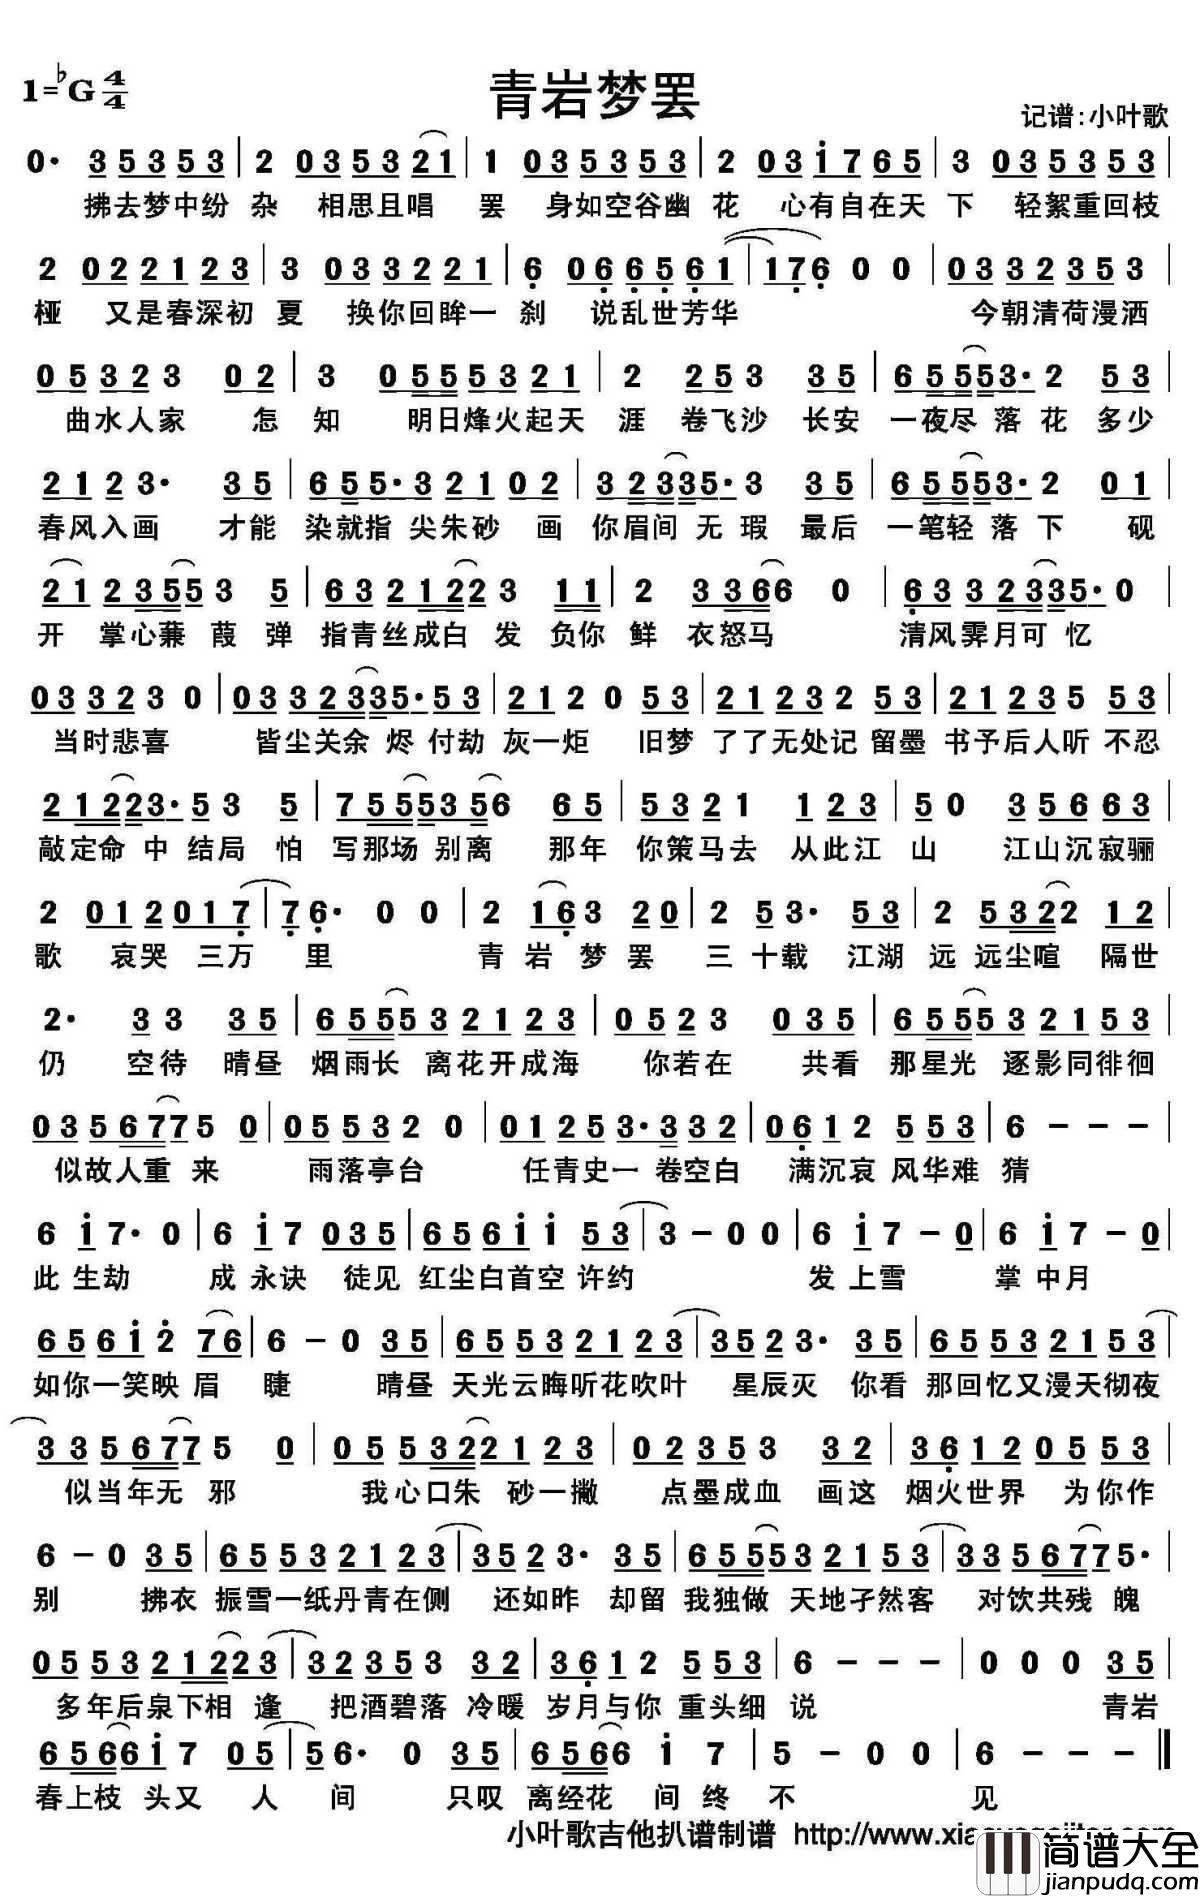 1=♭G 4/4
青岩梦罢
记谱:小叶歌
0· 3 5 3 5 3 | 2 0 3 5 3 2 1 | 1 0 3 5 3 5 3 | 2 0 3 i 7 6 5 | 3 0 3 5 3 5 3 |
拂去梦中纷 杂 相思且唱 罢 身如空谷幽 花 心有自在天 下 轻絮重回枝
2 0 2 2 1 2 3 | 3 0 3 3 2 2 1 | 6 0 6 6 5 6 1 | 1 7 6 0 0 | 0 3 3 2 3 5 3 |
桠 又是春深初 夏 换你回眸一 刹 说乱世芳华 今朝清荷漫洒
0 5 3 2 3 0 2 | 3 0 5 5 5 3 2 1 | 2 2 5 3 3 5 | 6 5 5 5 3· 2 5 3 |
曲水人家 怎 知 明日烽火起天 涯 卷飞沙 长安 一夜尽 落 花 多少
2 1 2 3· 3 5 | 6 5 5· 3 2 1 0 2 | 3 2 3 3 5· 3 3 5 | 6 5 5 5 3· 2 0 1 |
春风入画 才能 染就指 尖朱砂 画 你眉间 无 瑕 最后 一笔轻 落 下 砚
2 1 2 3 5 5 3 5 | 6 3 2 1 2 2 3 1 1 | 2 3 3 6 6 0 | 6 3 3 2 3 3 5· 0 |
开 掌心蒹 葭 弹 指青丝成白 发 负你 鲜 衣怒马 清风霁月可 忆
0 3 3 2 3 0 | 0 3 3 2 3 3 5· 5 3 | 2 1 2 0 5 3 | 2 1 2 3 2 5 3 | 2 1 2 3 5 5 3 |
当时悲喜 皆尘关余 烬 付劫 灰一炬 旧梦 了了无处记 留墨 书予后人听 不忍
2 1 2 2 3· 5 3 5 | 7 5 5 5 3 5 6 6 5 | 5 3 2 1 1 2 3 | 5 0 3 5 6 6 3 |
敲定命 中 结局 怕 写那场 别离 那年 你策马去 从此江 山 江山沉寂骊
2 0 1 2 0 1 7 | 7 6· 0 0 | 2 1 6 3 2 0 | 2 5 3· 5 3 | 2 5 3 2 2 1 2 |
歌 哀哭 三万 里 青 岩 梦 罢 三 十载 江湖 远 远尘喧 隔世
2· 3 3 3 5 | 6 5 5 5 3 2 1 2 3 | 0 5 2 3 0 3 5 | 6 5 5 5 3 2 1 5 3 |
仍 空待 晴昼 烟雨长 离花开成海 你若在 共看 那星光 逐影同徘徊
0 3 5 6 7 7 5 0 | 0 5 5 3 2 0 | 0 1 2 5 3· 3 3 2 | 0 6 1 2 5 5 3 | 6 – – – |
似故人重 来 雨落亭台 任青史一 卷空白 满沉哀 风华难 猜
6 i 7· 0 | 6 i 7 0 3 5 | 6 5 6 i i 5 3 | 3 – 0 0 | 6 i 7 – 0 | 6 i 7 – 0 |
此 生劫 成 永诀 徒见 红尘白首空 许约 发 上雪 掌 中月
6 5 6 i 2 7 6 | 6 – 0 3 5 | 6 5 5 3 2 1 2 3 | 3 5 2 3· 3 5 | 6 5 5 3 2 1 5 3 |
如你一笑映 眉 睫 晴昼 天光云晦听花吹叶 星辰灭 你看 那回忆又漫天彻夜
3 3 5 6 7 7 5 0 | 0 5 5 3 2 2 1 2 3 | 0 2 3 5 3 3 2 | 3 6 1 2 0 5 5 3 |
似当年无 邪 我心口朱 砂一撇 点墨成血 画这 烟火世界 为你作
6 – 0 3 5 | 6 5 5 3 2 1 2 3 | 3 5 2 3· 3 5 | 6 5 5 5 3 2 1 5 3 | 3 3 5 6 7 7 5· |
别 拂衣 振雪一纸丹青在侧 还如昨 却留 我独做 天地孑然客 对饮共残 魄
0 5 5 3 2 1 2 2 3 | 3 2 3 5 3 3 2 | 3 6 1 2 5 5 3 | 6 – – – | 0 0 0 3 5 |
多年后泉下相 逢 把酒碧落 冷暖 岁月与你 重头细 说 青岩
6 5 6 6 i 7 0 5 | 5 6· 0 3 5 | 6 5 6 6 i 7 | 5 – 0 0 | 6 – – – ‖
春上枝 头又 人 间 只叹 离经花 间 终 不 见
小叶歌吉他扒谱制谱 http://www.xiaoyegejita.com
简谱大全
jianpudq.com